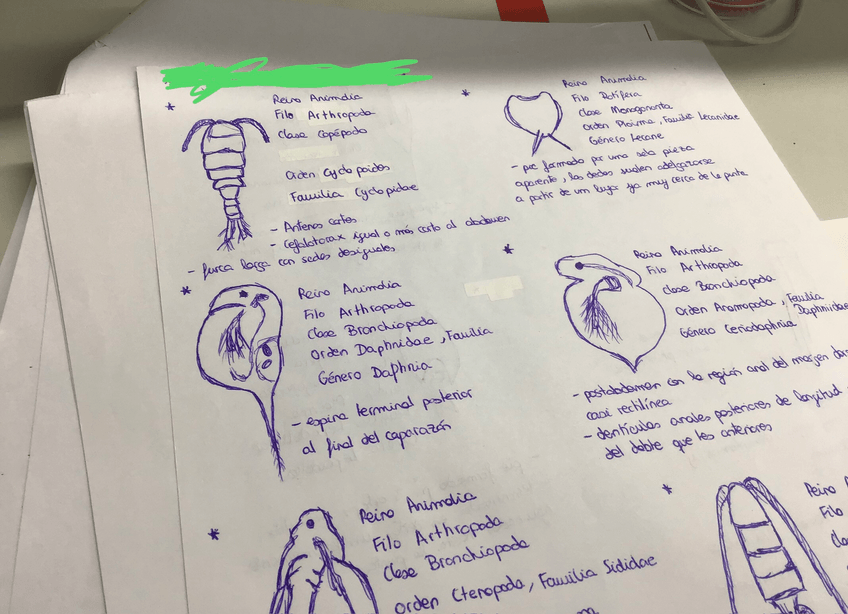 Reino Animalia
Filo Arthropoda
Clase Copépoda
Orden Cyclopoidos
Familia Cyclopidae
- Antenas cortas
- Cefalotorax igual o más corto al abdomen
- furca larga con sedas desiguales
Reino Animalia
Filo Rotífera
Clase Monogononta
Orden Ploima, Familia Lecanidae
Género Lecane
- pie formado por una sola pieza
aparente, los dedos suelen adelgazarse
a partir de un lugar ya muy cerca de la punta
Reino Animalia
Filo Arthropoda
Clase Branchiopoda
Orden Daphnidae, Familia
Género Daphnia
- espina terminal posterior
al final del caparazón
Reino Animalia
Filo Arthropoda
Clase Branchiopoda
Orden Anomopoda, Familia
Daphniidae
Género Ceriodaphnia
- postabdomen con la región anal del margen
casi rectilínea
- dentículos anales posteriores de longitud
del doble que los anteriores
Reino Animalia
Filo Arthropoda
Clase Branchiopoda
Orden Ctenopoda, Familia Sididae
Reino
Filo